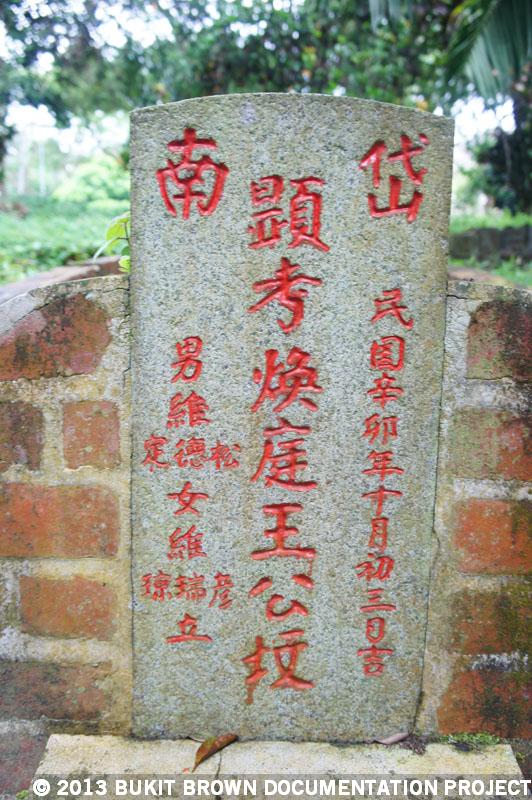 岱南
民国辛卯年十月初三日吉
顕考煥庭王公坟
男維松德定女維彦瑞琼立
© 2013 BUKIT BROWN DOCUMENTATION PROJECT